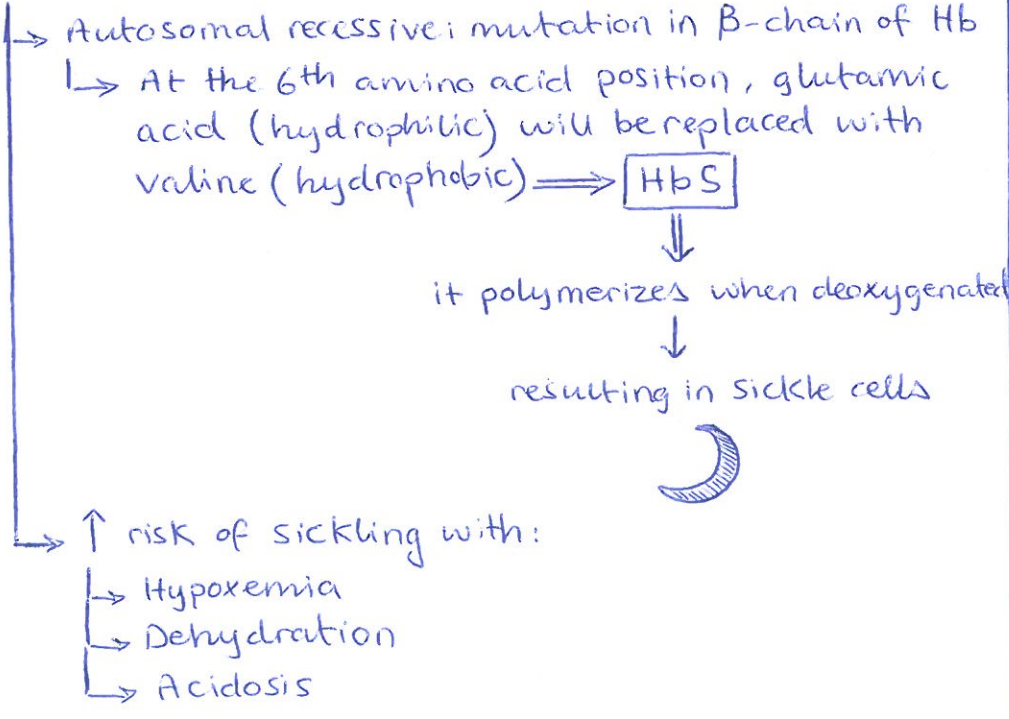 → Autosomal recessive; mutation in β-chain of Hb
→ At the 6th amino acid position, glutamic
acid (hydrophilic) will be replaced with
valine (hydrophobic) ⇒ HbS
⇓
it polymerizes when deoxygenated
↓
resulting in sickle cells
→ ↑ risk of sickling with:
→ Hypoxemia
→ Dehydration
→ Acidosis